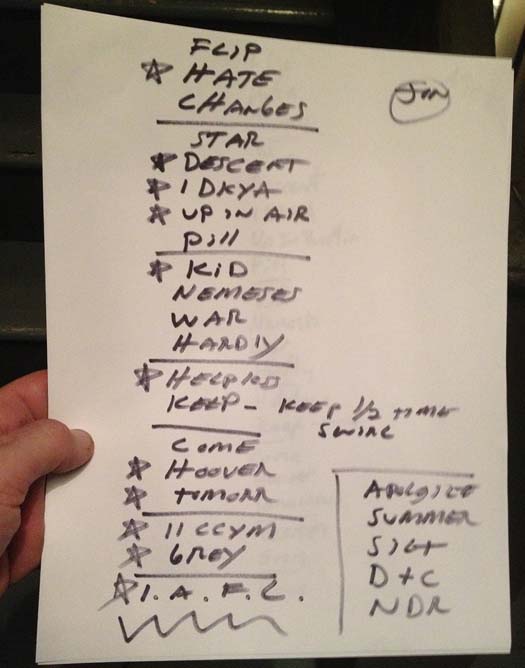 FLIP
HATE
CHANGES
JON
STAR
DESCENT
IDKYA
UP IN AIR
Pill
KiD
NEMESES
WAR
HARDlY
HELPLESS
KEEP - KEEP 1/2 TIME
SWING
COME
HOOVER
TOMORR
11CCYM
GREY
I. A. F. L.
APOLOGIZE
SUMMER
SIGH
D+C
NDR